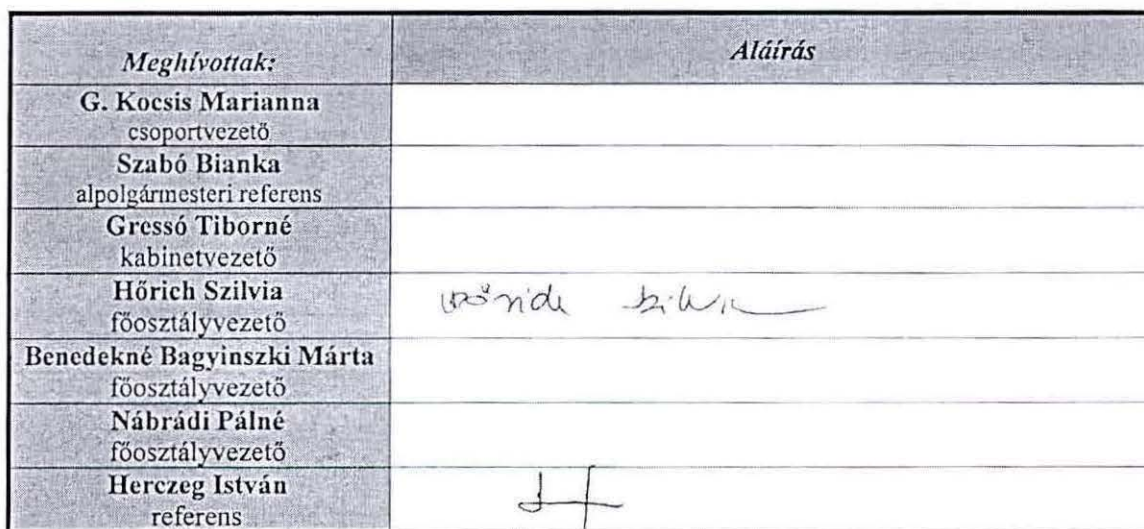 Meghívottak:
Aláírás
G. Kocsis Marianna
csoportvezető
Szabó Bianka
alpolgármesteri referens
Gressó Tiborné
kabinetvezető
Hőrich Szilvia
főosztályvezető
Benedekné Bagyinszki Márta
főosztályvezető
Nábrádi Pálné
főosztályvezető
Herczeg István
referens